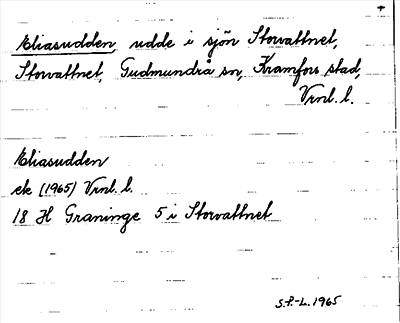 Eliasudden, udde i sjön Storvattnet,
Storvattnet, Gudmundrå sn, Kramfors stad,
Vrnl. l.
Eliasudden
ek (1965) Vrnl. l.
18 H Graninge 5 i Storvattnet
S.P.-L. 1965